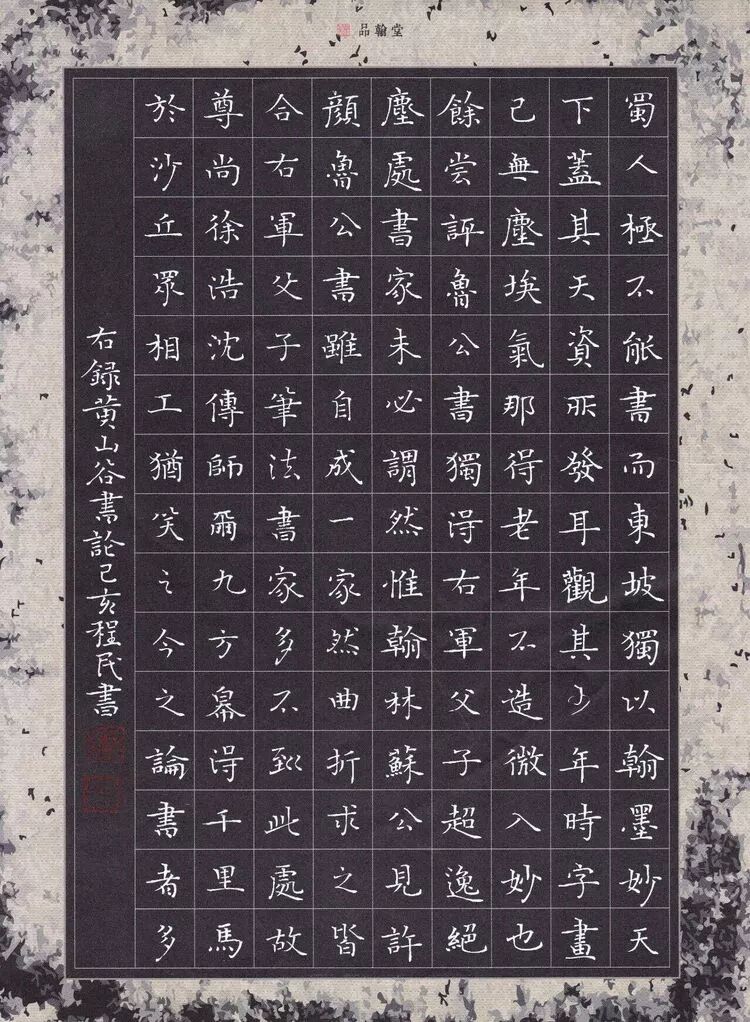 品翰堂
蜀人極不能書而東坡獨以翰墨妙天
下蓋其天資所發耳觀其少年時字畫
已無塵埃氣那得老年不造微入妙也
餘嘗評魯公書獨得右軍父子超逸絕
塵處書家未必謂然惟翰林蘇公見許
顏魯公書雖自成一家然曲折求之皆
合右軍父子筆法書家多不到此處故
尊尚徐浩沈傳師爾九方皋得千里馬
於沙丘眾相工猶笑之今之論書者多
右録黄山谷書論己亥程民書